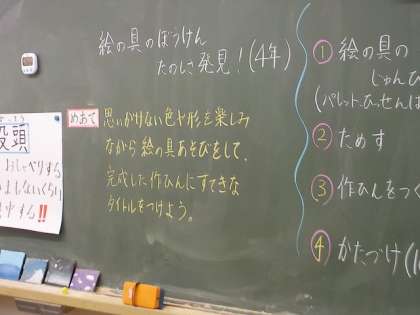 絵の具のぼうけん
たのしさ発見！(4年)
めあて
思いがけない色や形を楽しみ
ながら絵の具あそびをして、
完成した作ひんにすてきな
タイトルをつけよう。
① 絵の具の
じゅんび
(パレット、ひっせんば
② ためす
③ 作ひんをつく
④ かたづけ
没頭
おしゃべりする
しないくらい
中する!!